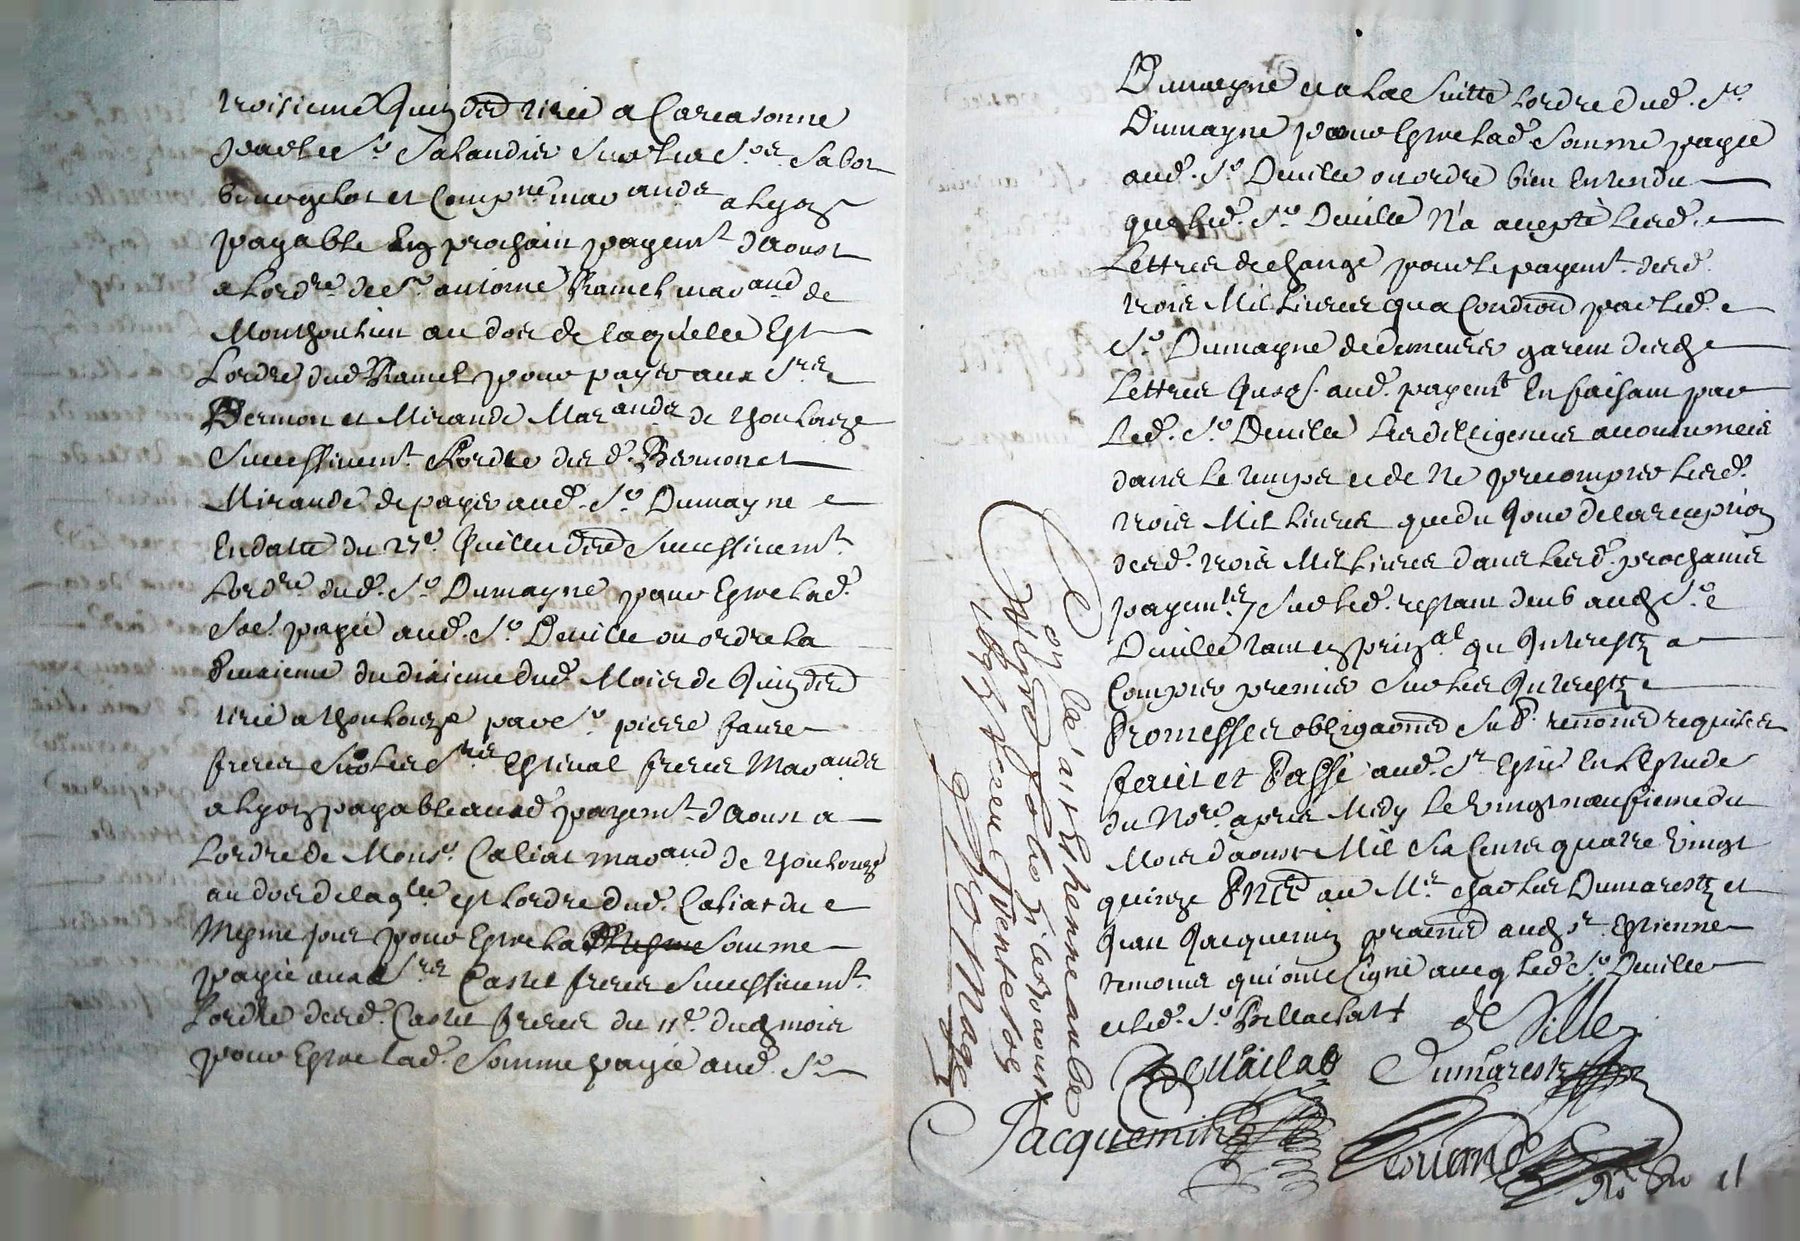 troisieme Juin dernd tirée a Carcasonne
par le Sr. Salandier sur les Srs. Sabot
bourgelat et Compne. marandz a Lyon
payable En prochain payemt. daoust
a Lordre. de Sr. antoine Ramel marand de
Montholieu au dos de laquelle Est
Lordre dud Ramel pour payer aux Srs.
Bermon et Mirande Marandz de Thoulouze
Successivemt. Lordre desd. Bermon et
Mirande de payer aud. Sr. Dumayne
En datte du 27e. Juillet dernd Successivemt.
Lordre. dud. Sr. Dumayne pour Estre lad.
Soe. payée aud. Sr. Deville ou ordre La
deuxieme du dixieme dud. Mois de Juin dernd
tirée a Thoulouze par Sr. pierre faure
freres Sur Les Srs. Estival freres Marands
a Lyon payable aud payemt. daoust a
Lordre de Monsr. Caliat marand de Thoulouze
au dos de laqlle est Lordre dud. Caliat du
Mesme jour pour Estre la Mesme Somme
payée aux Srs. Castet freres Successivemt.
Lordre desd. Castet freres du 11e. dud mois
pour Estre lad. Somme payée aud. Sr.
Dumayne et a La Suitte Lordre dud. Sr.
Dumayne pour Estre lad. Somme payée
aud. Sr. Deville ou ordre bien Entendu
que Led. Sr. Deville N'a accepté Lesd.
Lettres de change pour le payemt. desd.
trois Mil Livres qua Condiond par Led.
Sr. Dumayne de demeurer garent desd
Lettres Jusqs. aud. payemt En faisant par
Led. Sr. Deville Les dilligences accoutumées
dans Le temps et de Ne precompter Lesd.
trois Mil Livres que du Jour de la reception
desd. trois Mil Livres dans Lesd. prochains
payemts Sur Led. restant deub aud Sr.
Deville tant en prinal qu Interestz a
Compter premier Sur Les Interestz
Promesses obligaons Sub. renons requises
fait et Passé aud. St Estne En L'Estude
du Nore. apres Midy Le vingt neufieme du
Mois daoust Mil Six Cents quatre vingt
quinze Pnts au Mr. charles Dumarestz et
Jean Jacquemin praend aud St. Estienne
temoins qui ont Signé avec Led. Sr. Deville
et Led. Sr. Bellachat
de Ville
Dumarestz
Jacquemin
Con.lé a st Estienne
1695